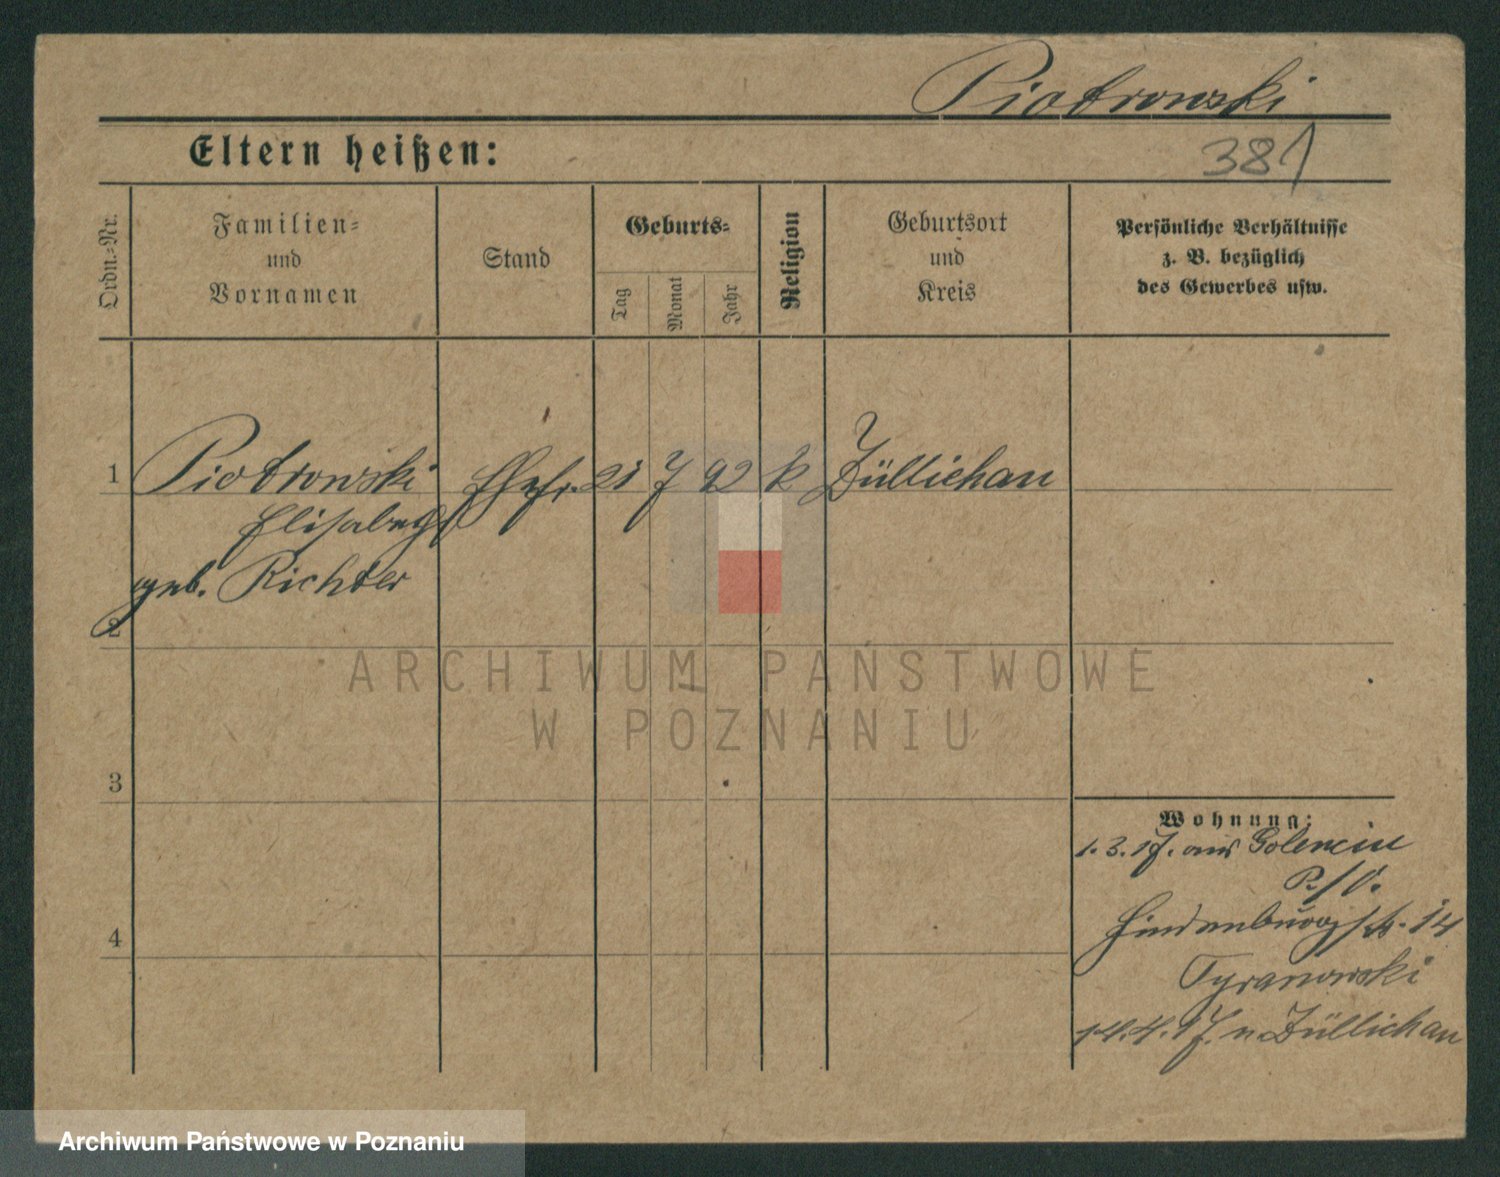 Piotrowski
381
Eltern heißen:
Ordn.-Nr.
Familien-
und
Vornamen
Stand
Geburts-
Tag
Monat
Jahr
Religion
Geburtsort
und
Kreis
Persönliche Verhältnisse
z. B. bezüglich
des Gewerbes usw.
1 Piotrowski Ehefr. 21 7 92 k Züllichau
Elisabeth
geb. Richter
2
ARCHIWUM PAŃSTWOWE
W POZNANIU
3
Wohnung:
1.3.17. aus Golencin
P./O.
4
Hindenburgstr. 14
Tyranowski
14.4.17. n. Züllichau
Archiwum Państwowe w Poznaniu